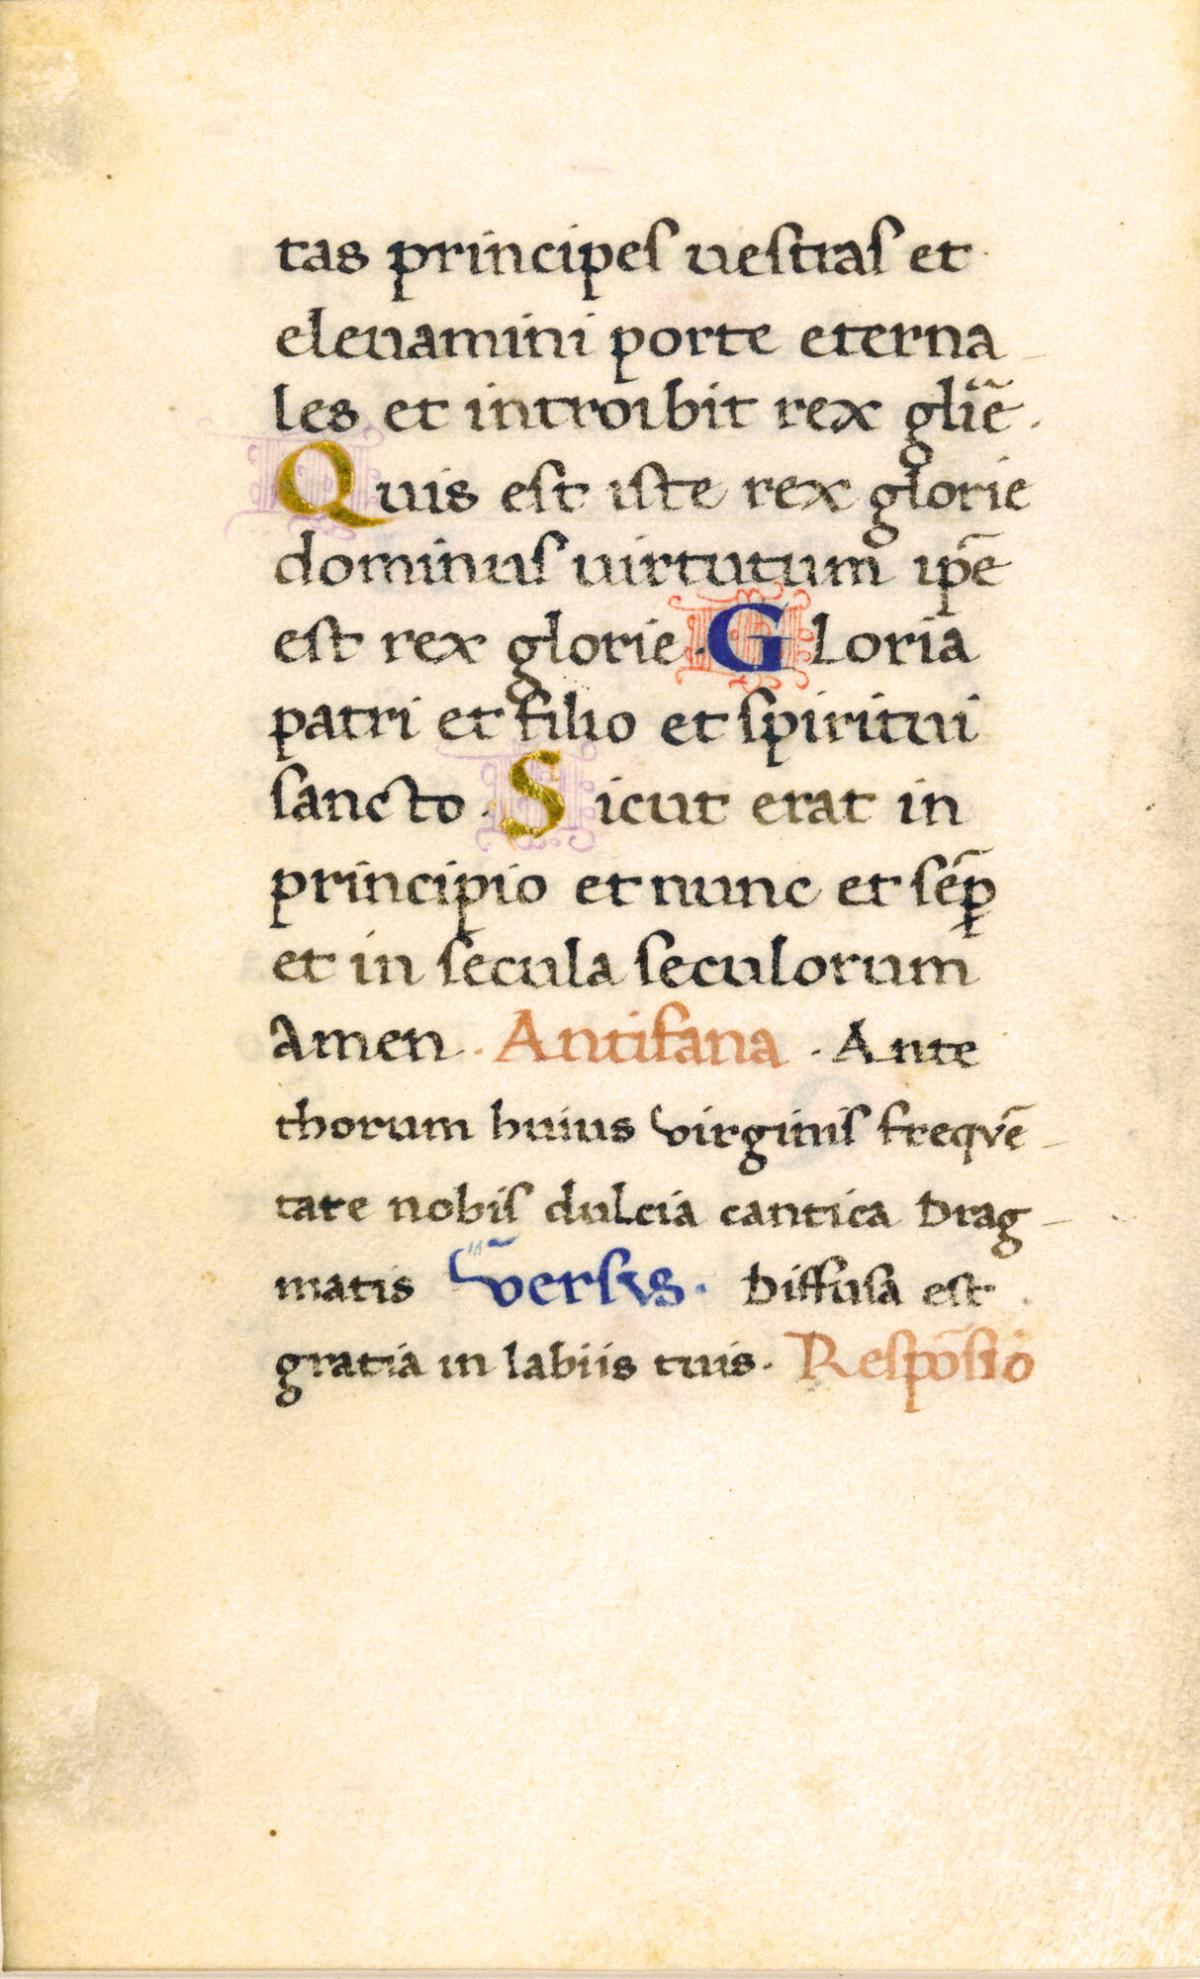 tas principeſ ueſtraſ et
eleuamini porte eterna
les et introibit rex gl̄ie.
Quis eſt iſte rex glorie
dominuſ uirtutum ip̄e
eſt rex glorie. Gloria
patri et filio et ſpiritui
ſancto. Sicut erat in
principio et nunc et ſēp̱
et in ſecula ſeculorum
Amen. Antifana. Ante
thorum huius virginiſ freqvē
tate nobiſ dulcia cantica Drag
matis verſvs. Diffuſa eſt
gratia in labiis tuis. Reſpōſio